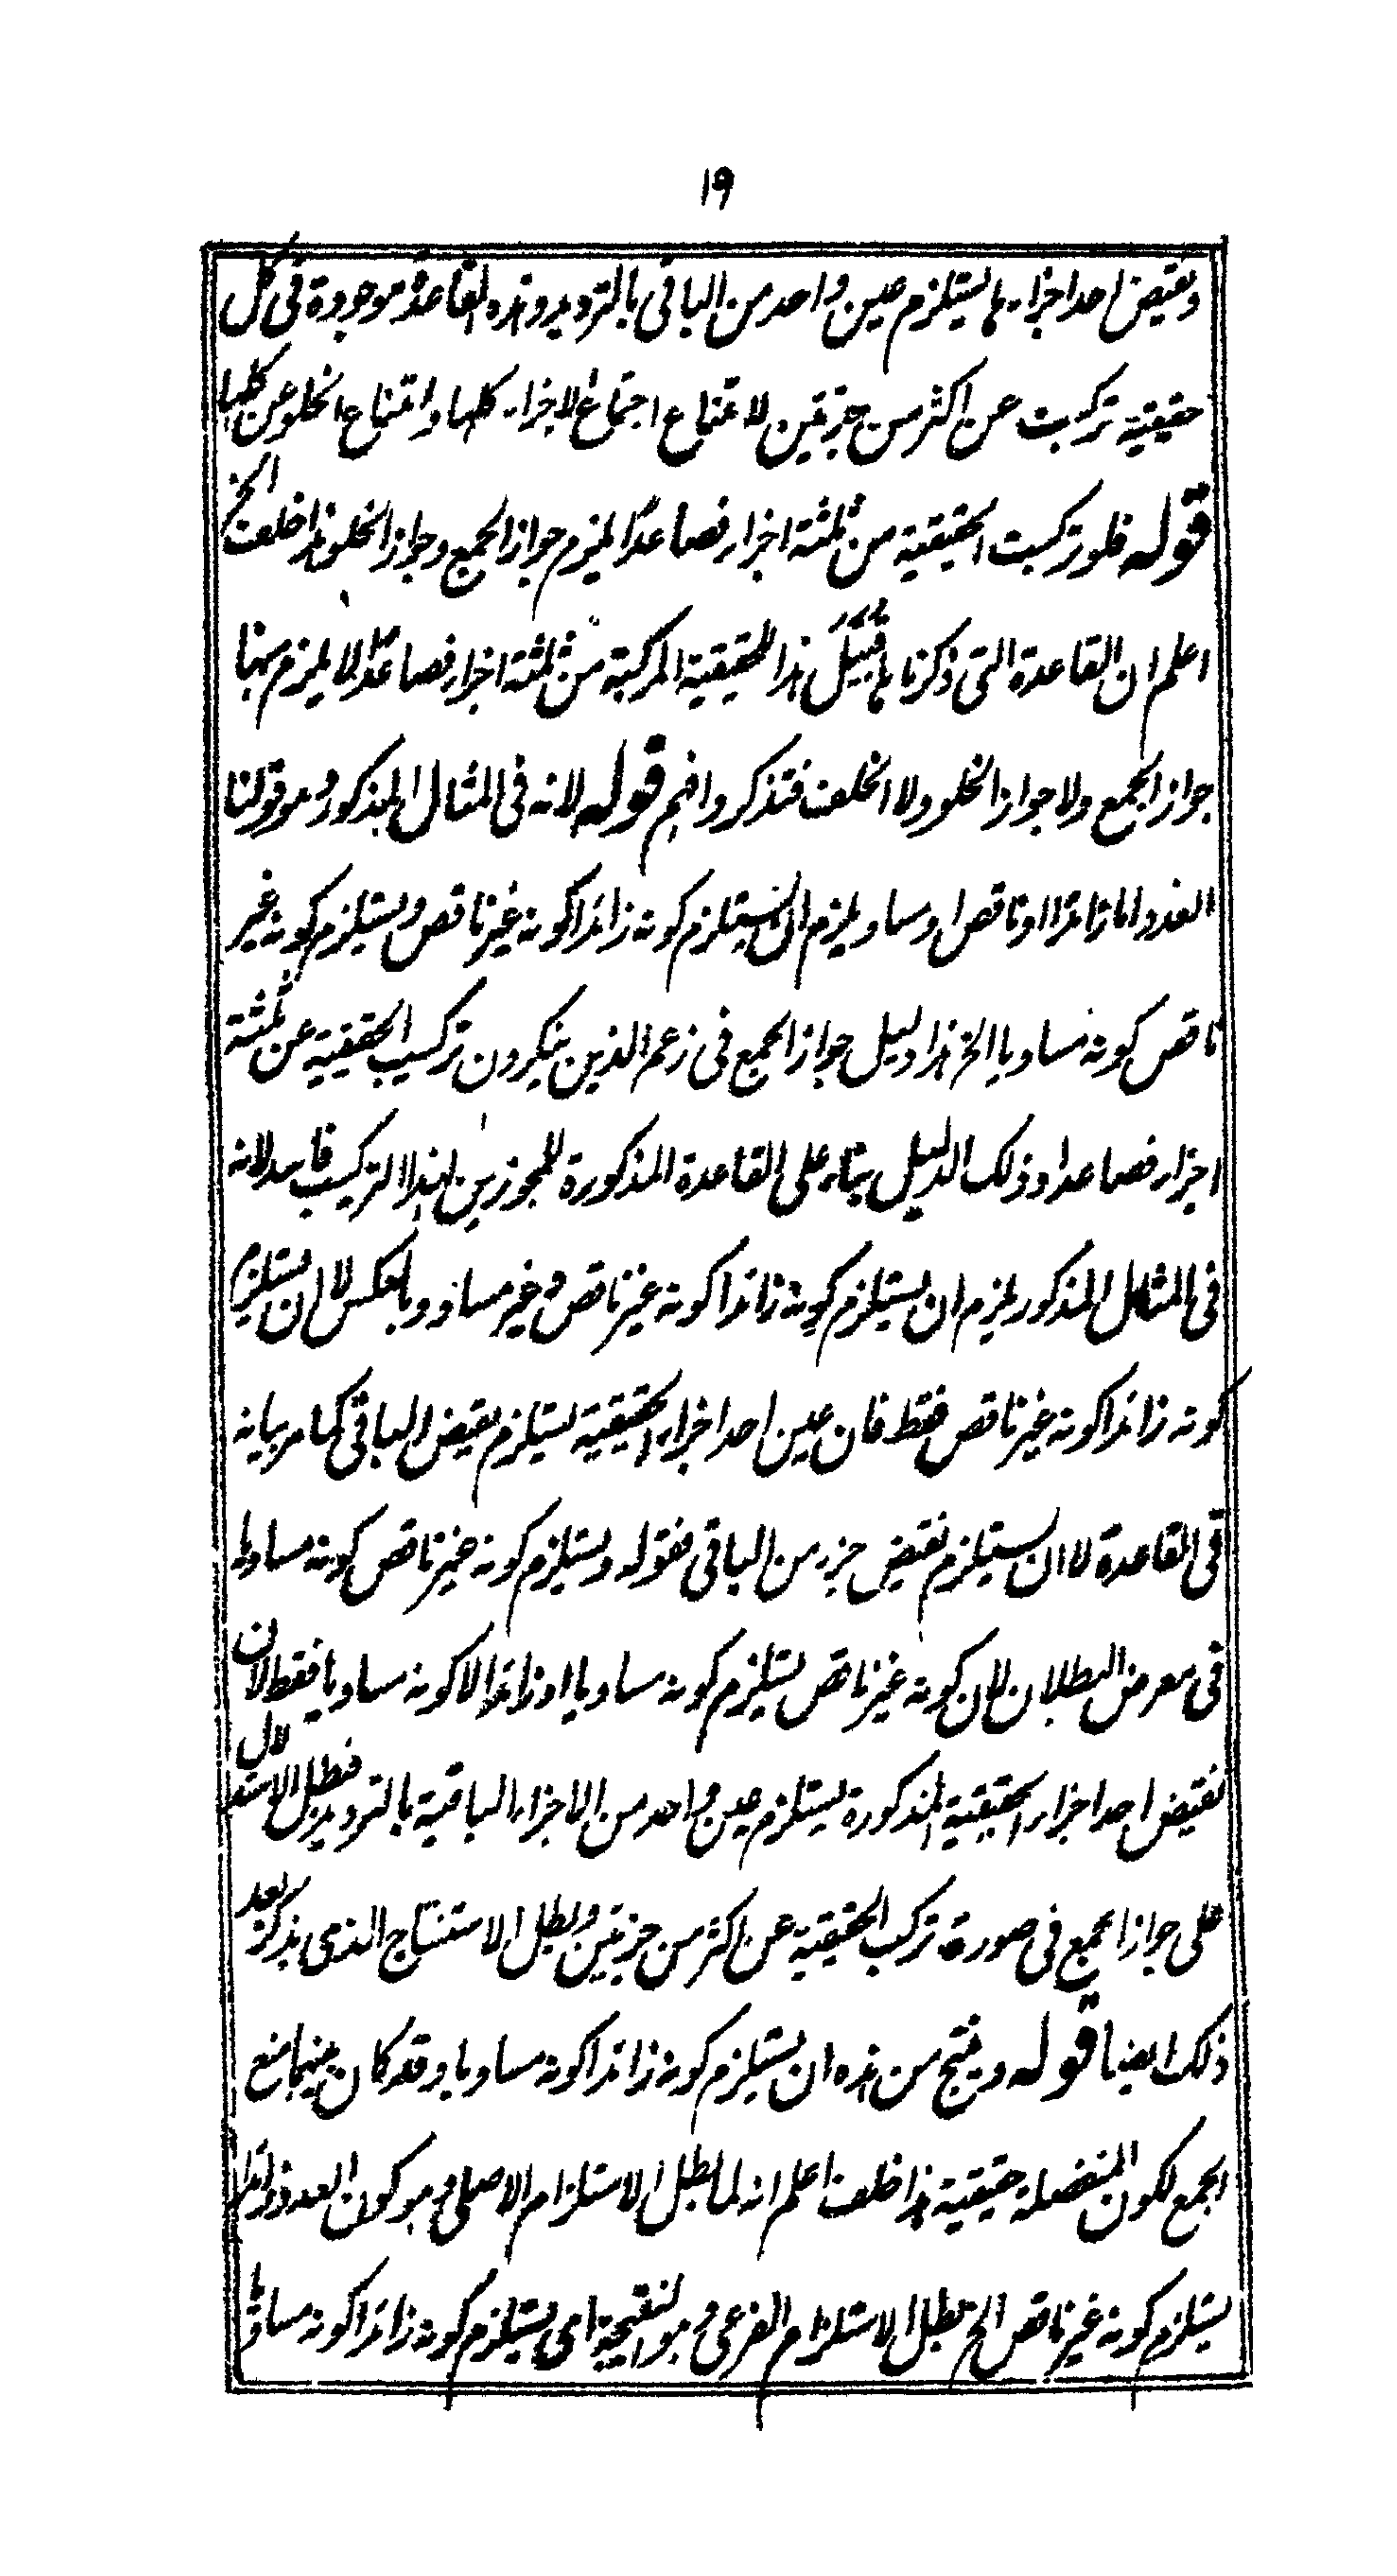 ١٩
ونقيض احد اجزائها يستلزم عين واحد من الباقي بالترديد وهذه القاعدة موجودة في كل
حقيقية تركبت عن اكثر من جزئين لامتناع اجتماع الاجزاء كلها وامتناع الخلو عن كلها
قوله فلو تركبت الحقيقية من ثلثة اجزاء فصاعدًا يلزم جواز الجمع وجواز الخلو هذا خلف الخ
اعلم ان القاعدة التي ذكرناها قبيل هذا للحقيقية المركبة من ثلثة اجزاء فصاعدًا لا يلزم بها
جواز الجمع ولا جواز الخلو ولا الخلف فتذكر وافهم قوله لانه في المثال المذكور وهو قولنا
العدد اما زائد او ناقص او مساو يلزم ان يستلزم كونه زائدا كونه غير ناقص ويستلزم كونه غير
ناقص كونه مساويا الخ هذا دليل جواز الجمع في زعم الذين ينكرون تركيب الحقيقية عن ثلثة
اجزاء فصاعدا وذلك الدليل بناء على القاعدة المذكورة للمجوزين لهذا التركيب فاسد لانه
في المثال المذكور يلزم ان يستلزم كونه زائدا كونه غير ناقص وغير مساو وبالعكس لا ان يستلزم
كونه زائدا كونه غير ناقص فقط فان عين احد اجزاء الحقيقية يستلزم نقيض الباقي كما مر بيانه
في القاعدة لا ان يستلزم نقيض جزء من الباقي فقوله ويستلزم كونه غير ناقص كونه مساويا
في معرض البطلان لان كونه غير ناقص يستلزم كونه مساويا او زائدا لا كونه مساويا فقط لان
نقيض احد اجزاء الحقيقية المذكورة يستلزم عين واحد من الاجزاء الباقية بالترديد فبطل الاستدلال
على جواز الجمع في صورة تركب الحقيقية عن اكثر من جزئين وبطل الاستنتاج الذي يذكر بعد
ذلك ايضا قوله وينتج من هذه ان يستلزم كونه زائدا كونه مساويا وقد كان بينهما منع
الجمع لكون المنفصلة حقيقية هذا خلف اعلم انه لما بطل الاستلزام الاصلي وهو كون العدد زائدا
يستلزم كونه غير ناقص الخ بطل الاستلزام الفرعي وهو النتيجة اي يستلزم كونه زائدا كونه مساويا